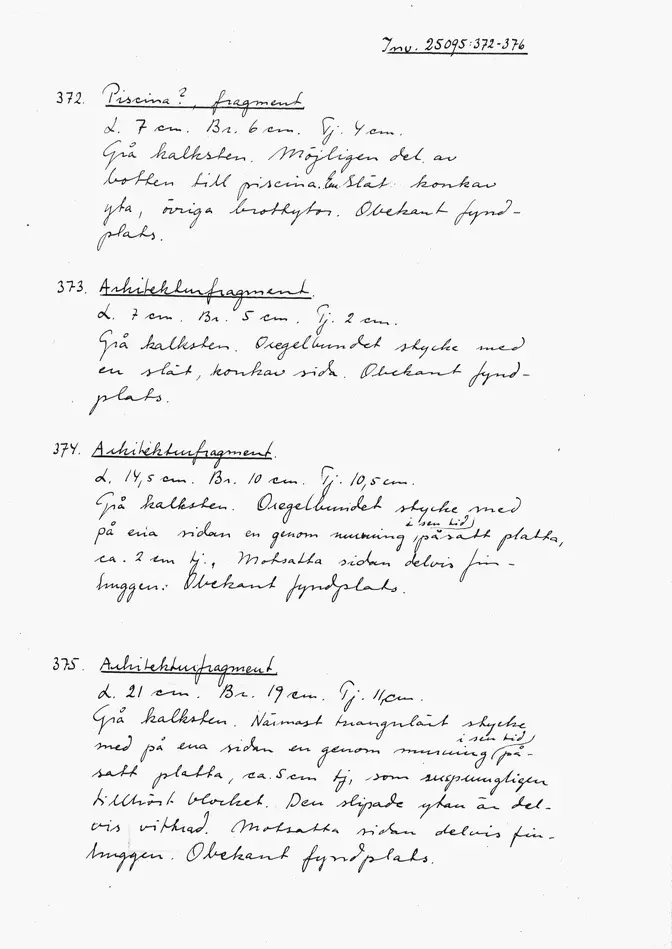 Inv. 25095:372-376
372. Piscina?, fragment
L. 7 cm. Br. 6 cm. Tj. 4 cm.
Grå kalksten. Möjligen del av
botten till piscina. En slät konkav
yta, övriga brottytor. Obekant fynd-
plats.
373. Arkitekturfragment.
L. 7 cm. Br. 5 cm. Tj. 2 cm.
Grå kalksten. Oregelbundet stycke med
en slät, konkav sida. Obekant fynd-
plats.
374. Arkitekturfragment.
L. 14,5 cm. Br. 10 cm. Tj. 10,5 cm.
Grå kalksten. Oregelbundet stycke med
i sen tid
på ena sidan en genom murning påsatt platta,
ca. 2 cm tj., Motsatta sidan delvis fin-
huggen. Obekant fyndplats.
375. Arkitekturfragment.
L. 21 cm. Br. 19 cm. Tj. 11 cm.
Grå kalksten. Närmast triangulärt stycke
i sen tid
med på ena sidan en genom murning på-
satt platta, ca. 5 cm tj, som ursprungligen
tillhört blocket. Den slipade ytan är del-
vis vittrad. Motsatta sidan delvis fin-
huggen. Obekant fyndplats.